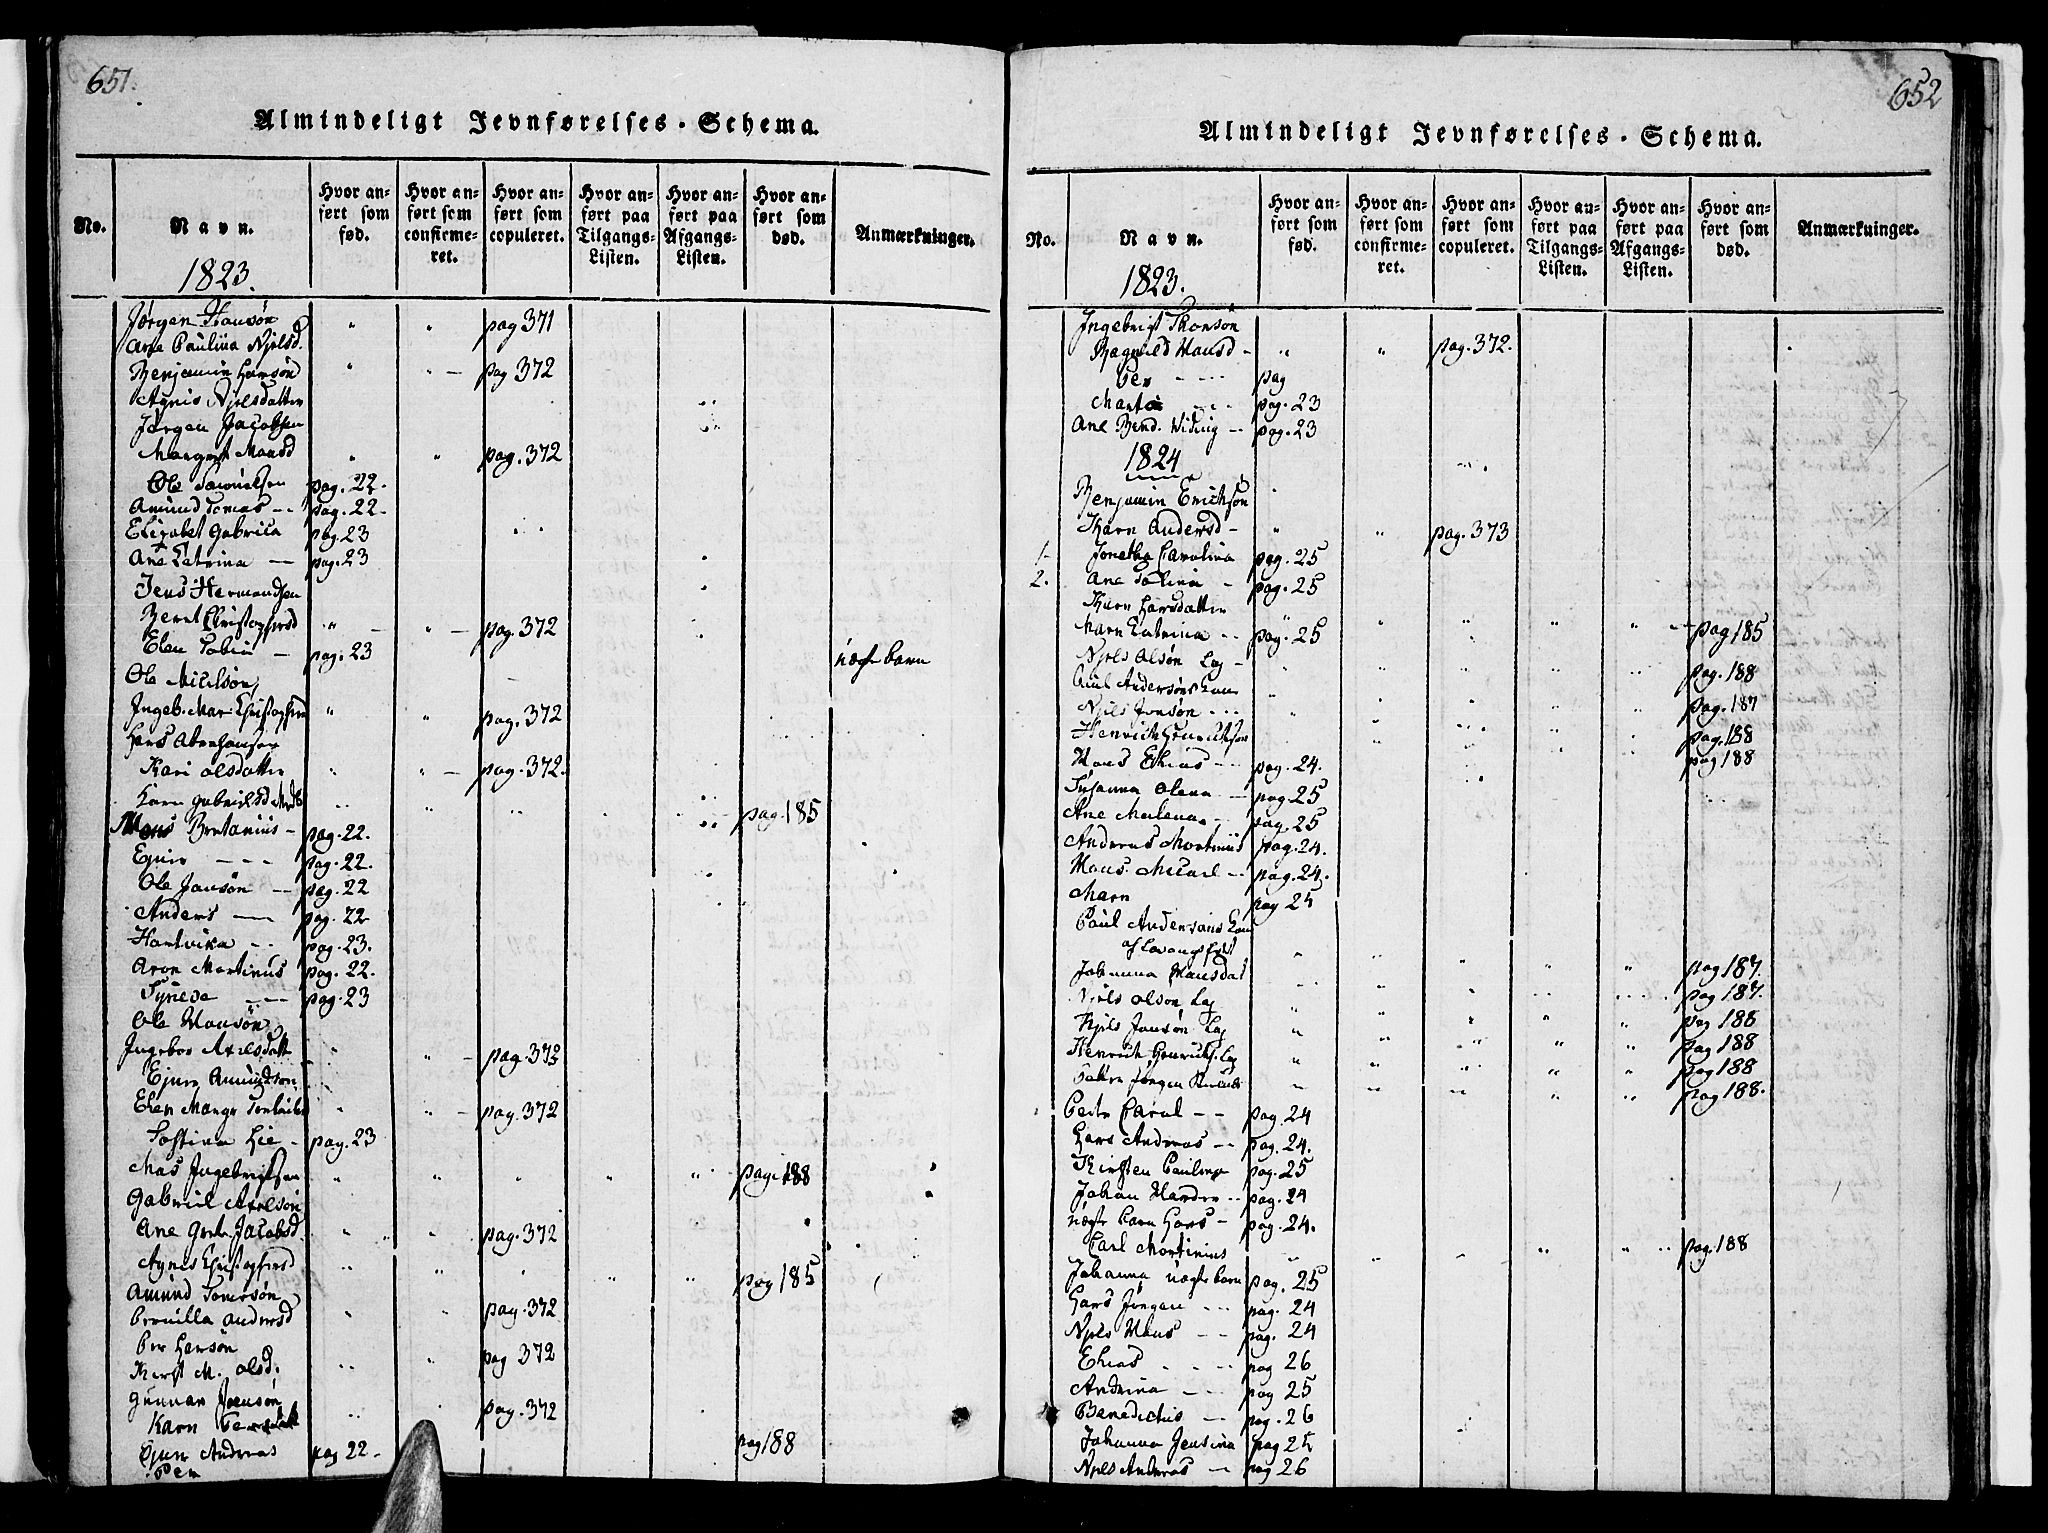 651.
Almindeligt Jevnførelses-Schema.
No.
Navn.
Hvor anført som fød.
Hvor anført som confirmeret.
Hvor anført som copuleret.
Hvor anført paa Tilgangs-Listen.
Hvor anført paa Afgangs-Listen.
Hvor anført som død.
Anmærkninger.
1823.
Jørgen Hansøn
Ane Paulina Njelsd. " " pag 371
Benjamin Hansøn
Agnis Njelsdatter " " pag 372
Jørgen Jacobsen
Margret Mansd " " pag. 372
Ole Samuelsen pag. 22.
Amund Tomas pag. 22
Elisabet Gabriela pag. 23
Ane Catrina pag. 23
Jens Hermandsen
Beret Christophersd " " pag. 372
Elen Tobia pag. 23 uægte barn
Ole Nielsøn
Ingeb. Mar. Christophersd " " pag. 372
Hans Abrahamsen
Kari Olsdatter " " pag. 372.
Karn Gabrielsd " " " " " pag. 185
Mons Bertanius pag. 22.
Ejner pag. 22.
Ole Jansøn pag. 22
Anders pag. 22
Hartvika pag. 23.
Aron Martinus pag. 22.
Syneva pag. 23
Ole Monsøn
Ingebor Axelsdatt " " pag. 372
Ejner Amundson
Elen Margr " " pag. 372
Sostina Lie pag. 23
Mas Ingebrigtsen " " " " " pag. 188
Gabriel Axelson
Ane Greta Jacobsd " " pag. 372
Agnes Christophersd " " " " " pag 185
Amund Tomesøn
Pernilla Andersd " " pag. 372
Per Hansøn
Kirst M. Olsd. " " pag 372
Gunnar Jensøn
Karn " " pag. 372
pag 188
Ejner Andreas pag 22
Per
652
Almindeligt Jevnførelses-Schema.
No.
Navn.
Hvor anført som fød.
Hvor anført som confirmeret.
Hvor anført som copuleret.
Hvor anført paa Tilgangs-Listen.
Hvor anført paa Afgangs-Listen.
Hvor anført som død.
Anmærkninger.
1823.
Ingebrigt Thonson
Ragnild Mansd " " pag. 372.
Per pag
Marta pag. 23
Ane Bend. Widing pag. 23
1824
Benjamin Erichsøn
Karn Andersd " " pag. 373
1. Jonetha Carolina pag. 25
2. Ane Tolina pag. 25
Karn Larsdatter " " " " " pag 185
Marn Catrina pag. 25
Njels Olsøn Lap " " " " " pag. 188
Paul Andersøns " " " " " pag. 187
Njels Jonsøn " " " " " pag. 188
Henrich Henrichsen " " " " " pag 188
Mons Elias pag. 24.
Susanna Olena pag 25
Ane Malena pag. 25
Andreas Mortinus pag. 24.
Mons Micael pag. 24.
Marn pag 25
Paul Andersøns
" " " " " pag 187.
Johanna Mansdat " " " " " pag 187.
Njels Olson Lap " " " " " pag 188
Njels Jonsøn Lap " " " " " pag 188
Henrich Henrichs. Lap " " " " " pag 188
Jørgen " " " " " pag 188.
Peter Carol pag. 24
Hans Andreas pag. 24.
Kirsten Paulina pag. 25
Johan pag. 24
uægte barn Hans pag. 24.
Carl Mortinius " " " " " pag. 188
Johanna uægte barn pag. 25
Hans Jørgen pag. 24
Njels Mons pag. 24
Elias pag 26
Andrina pag 25
Benedictus pag. 26
Johanna Jensina pag 25
Njels Andreas pag 26